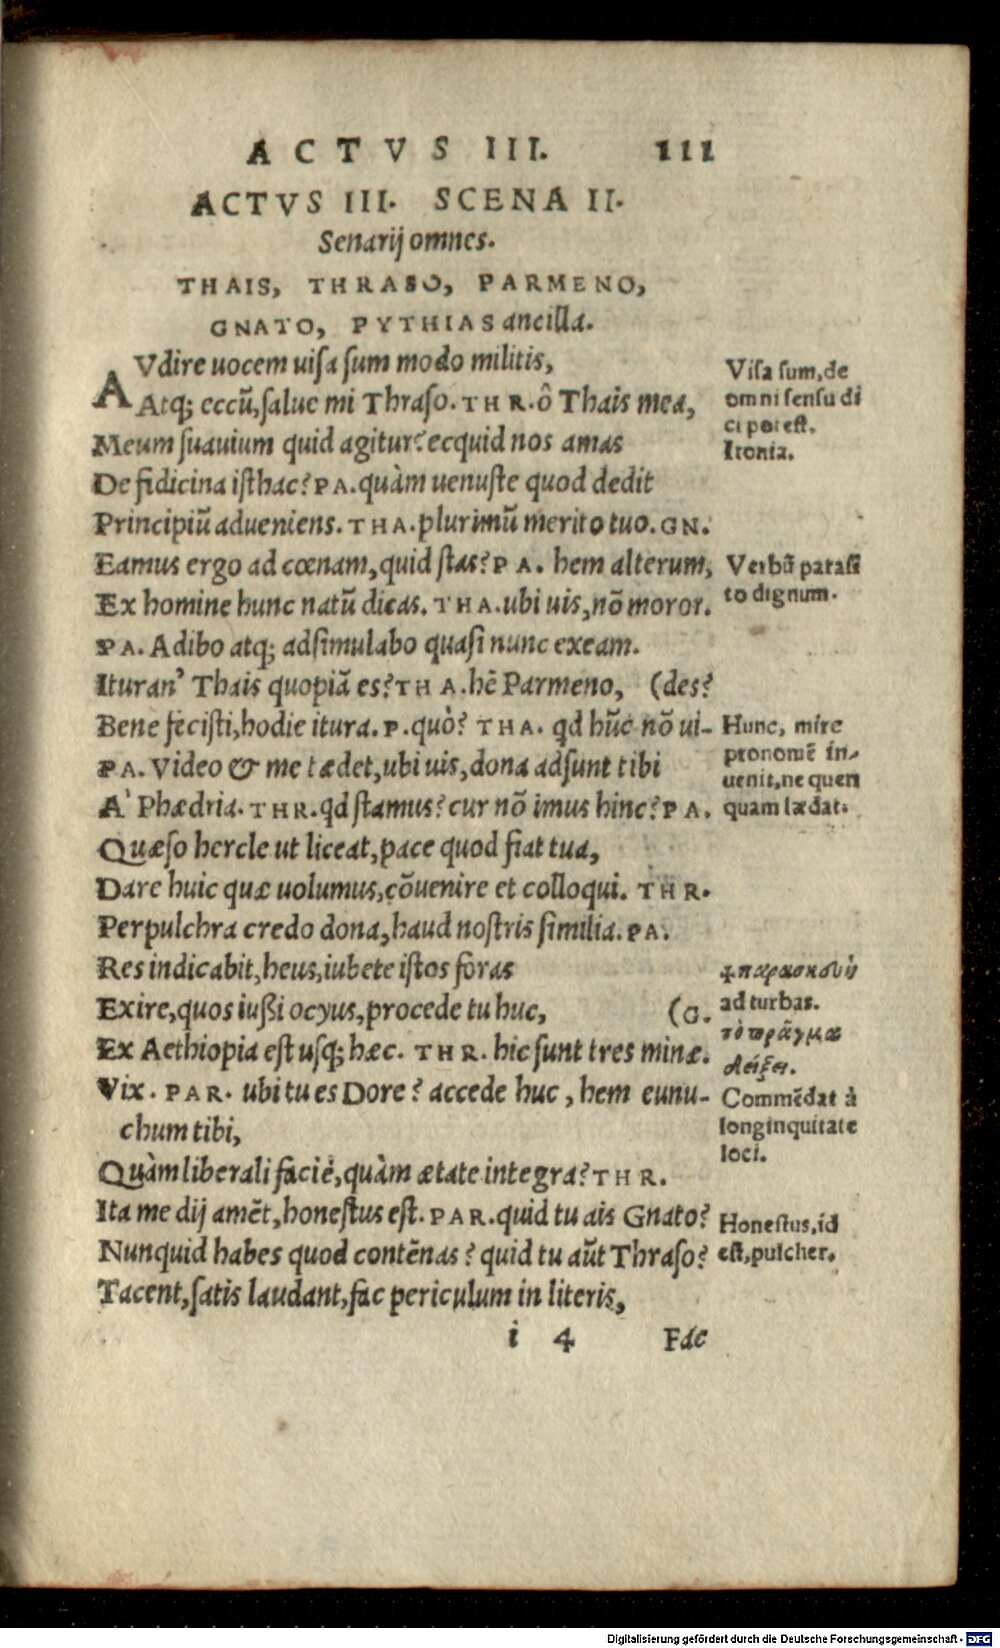 ACTVS III. 111
ACTVS III. SCENA II.
Senarij omnes.
THAIS, THRASO, PARMENO,
GNATO, PYTHIAS ancilla.
AVdire uocem uisa sum modo militis,
Atq; eccũ, salue mi Thraso. THR. ô Thais mea,
Meum suauium quid agitur? ecquid nos amas
De fidicina isthac? PA. quàm uenuste quod dedit
Principiũ adueniens. THA. plurimũ merito tuo. GN.
Eamus ergo ad cœnam, quid stas? PA. hem alterum,
Ex homine hunc natũ dicas. THA. ubi uis, nõ moror.
PA. Adibo atq; adsimulabo quasi nunc exeam.
Ituran' Thais quopiã es? THA. hẽ Parmeno, (des?
Bene fecisti, hodie itura. P. quò? THA. qd hũc nõ ui-
PA. Video & me tædet, ubi uis, dona adsunt tibi
A' Phædria. THR. qd stamus? cur nõ imus hinc? PA.
Quæso hercle ut liceat, pace quod fiat tua,
Dare huic quæ uolumus, cõuenire et colloqui. THR.
Perpulchra credo dona, haud nostris similia. PA.
Res indicabit, heus, iubete istos foras
Exire, quos iußi ocyus, procede tu huc, (G.
Ex Aethiopia est usq; hæc. THR. hic sunt tres minæ.
Vix. PAR. ubi tu es Dore? accede huc, hem eunu-
chum tibi,
Quàm liberali facie, quàm ætate integra? THR.
Ita me dij amẽt, honestus est. PAR. quid tu ais Gnato?
Nunquid habes quod contẽnas? quid tu aũt Thraso?
Tacent, satis laudant, fac periculum in literis,
i 4 Fac
Visa sum, de
omni sensu di
ci potest.
Ironia.
Verbũ parasi
to dignum.
Hunc, mire
pronomẽ in-
uenit, ne quen
quam lædat.
παρασκευὴ
ad turbas.
τὸ πρᾶγμα
δείξει.
Commẽdat à
longinquitate
loci.
Honestus, id
est, pulcher.
Digitalisierung gefördert durch die Deutsche Forschungsgemeinschaft - DFG